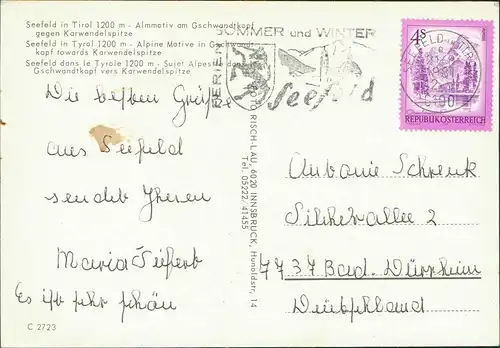 Seefeld in Tirol 1200 m - Almmotiv am Gschwandtkopf
gegen Karwendelspitze
Seefeld in Tyrol 1200 m - Alpine Motive in Gschwandt-
kopf towards Karwendelspitze
Seefeld dans le Tyrole 1200 m - Sujet Alpestre dans
Gschwandtkopf vers Karwendelspitze
Die besten Grüße
aus Seefeld
sendet Ihnen
Maria Seifert
Es ist sehr schön
C 2723
RISCH-LAU, 6020 INNSBRUCK, Hunoldstr. 14
Tel. 05222/41455
SOMMER und WINTER
FERIEN
Seefeld
SEEFELD IN TIROL
6100
4s
REPUBLIK ÖSTERREICH
Antonie Schrenk
7737 Bad. Dürrheim
Deutschland